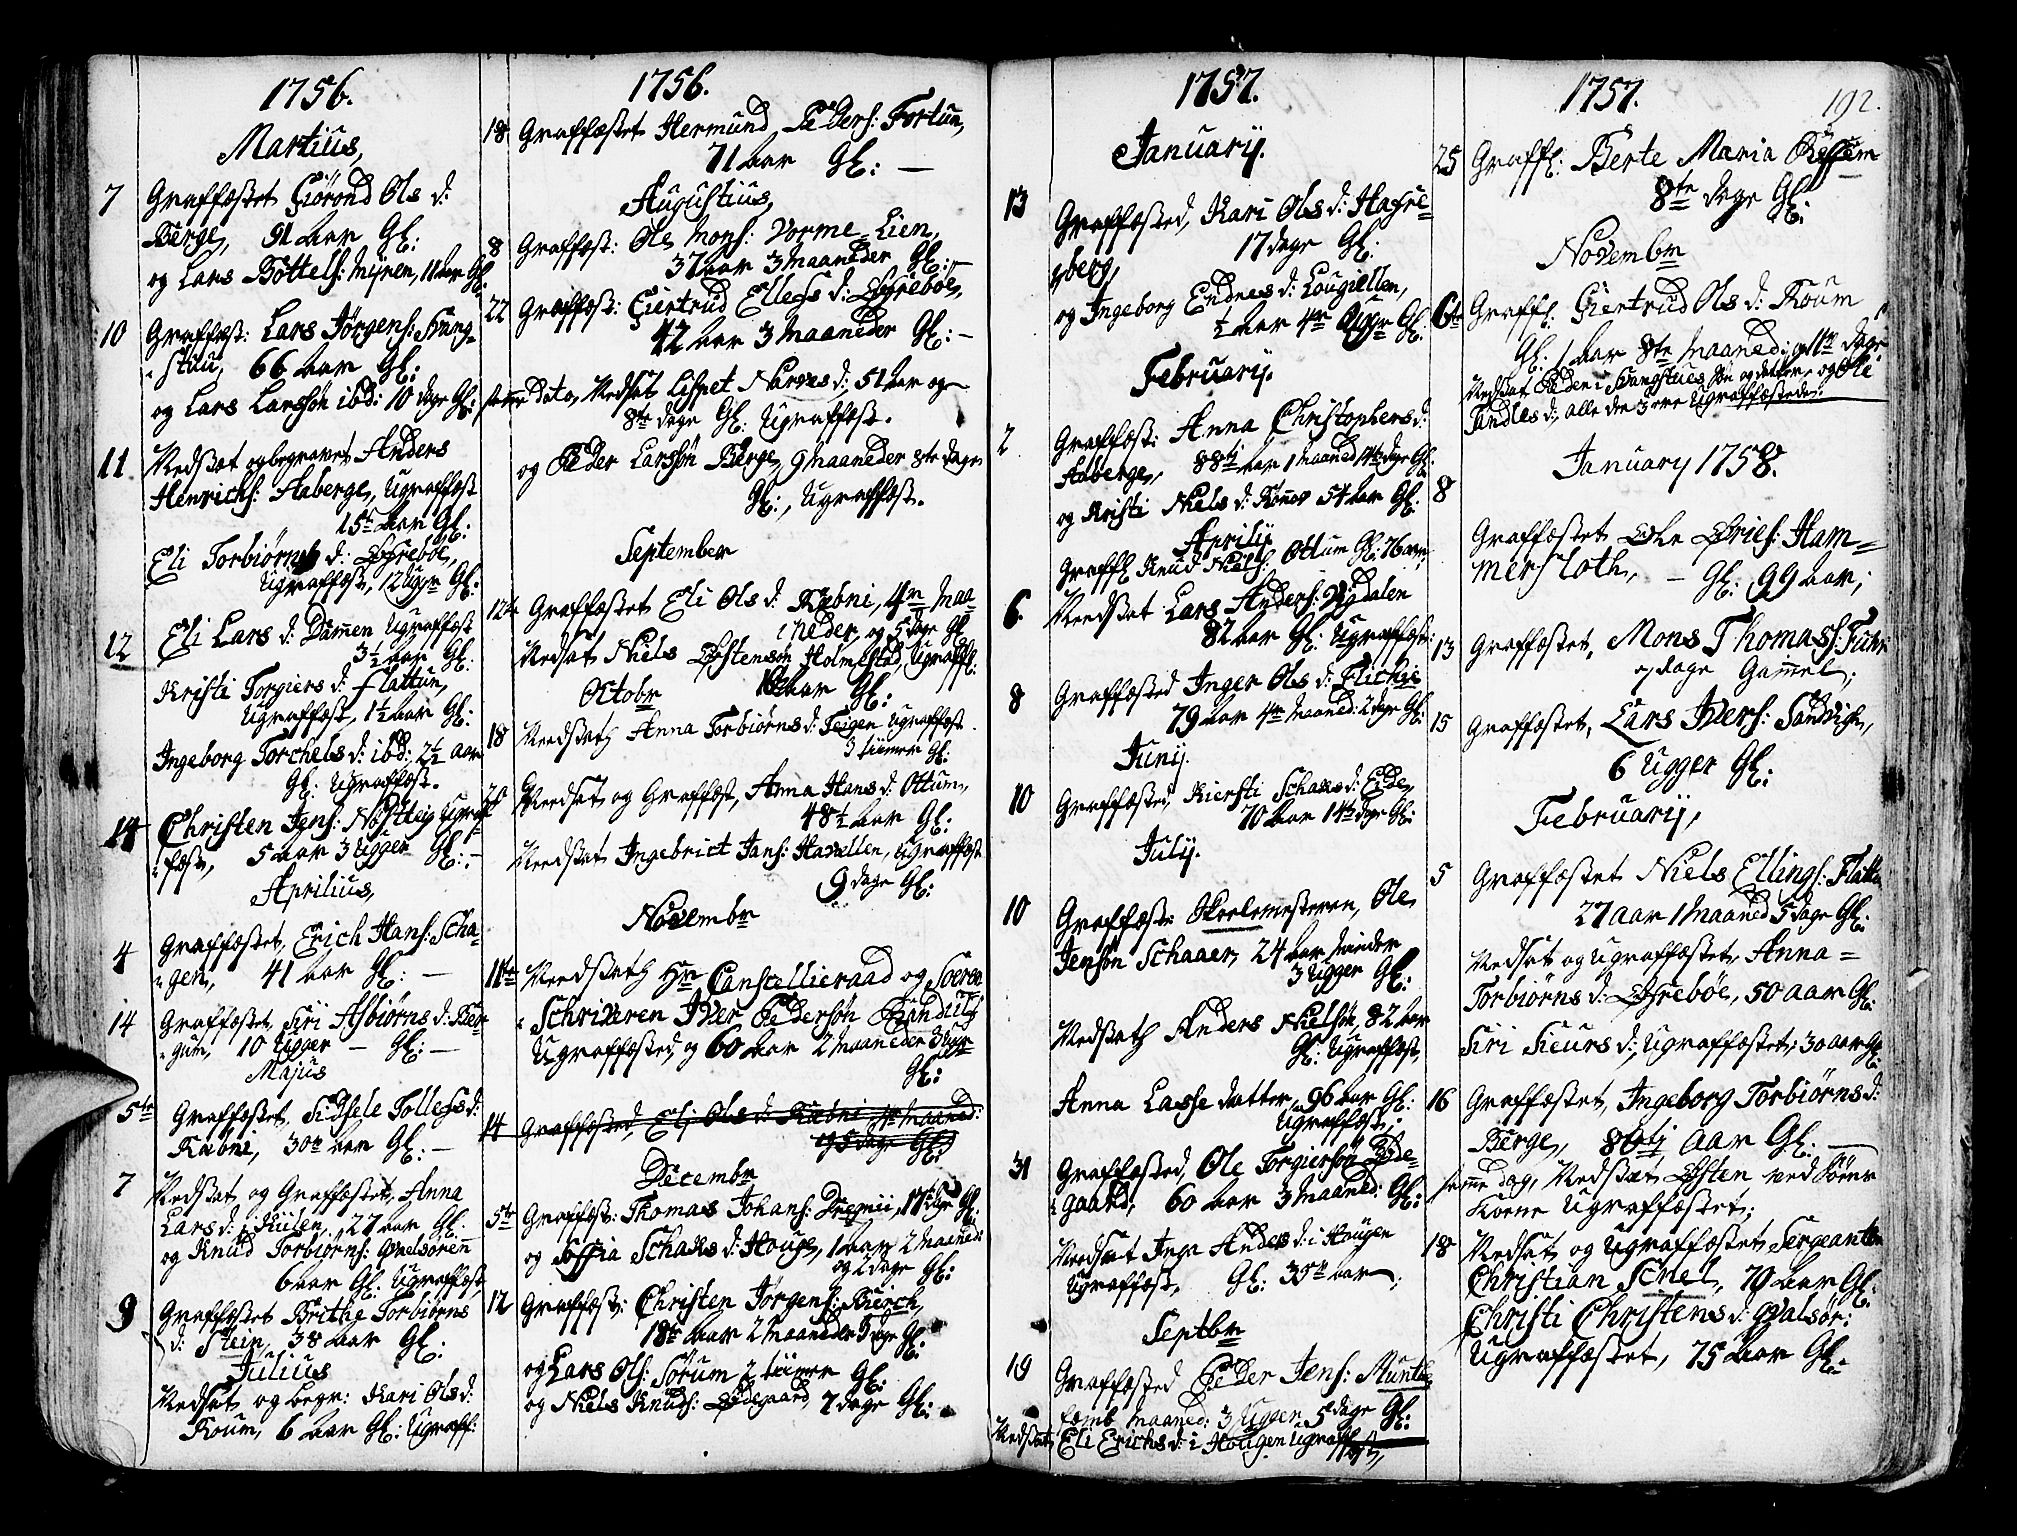 1756.
Martius,
7 Graffæstet Giørond Ols d:
Berge, 91 aar Gl:
og Lars Bottels: Mÿren, 11 aar Gl:
10 Graffæst: Lars Jørgens: Hung-
stau, 66 aar Gl:
og Lars Larssøn ibd: 10 dage Gl:
11 Nedsat og begravet Anders
Henrichs: Aaberge, ugraffæst
15 aar Gl:
Eli Torbiørns d: Øfrebøe,
ugraffæst, 12 ugr Gl:
12 Eli Lars d: Dammen ugraffæst
3½ aar Gl:
Kristi Torgiers d: flattun,
ugraffæst, 1½ aar Gl:
Ingeborg Torchels d: ibd: 2½ aar
Gl: ugraffæst.
14 Christen Jens: Nøstteig ugraf-
fæst, 5 aar 3 ugger Gl: -
Aprilius,
4 Graffæstet, Erich Hans: Scha-
gen, 41 aar Gl: -
14 Graffæstet, Siri Asbiørns d: Bier-
gum, 10 ugger - Gl: -
Majus
5te Graffæstet, Sidsele Tollefs d:
Kiøbni, 30te aar Gl: -
7 Nedsat og Graffæstet, Anna
Lars d: i Kiilen, 27 aar Gl:
og Knud Torbiørns: Qvalsøren
6 aar Gl: ugraffæst,
9 Graffæstet Brithe Torbiørns
d: Stein, 38 aar Gl:
Julius
Nedsat og begr: Kari Ols d:
Kroum, 6 aar Gl: ugraff:
1756.
18 Graffæstet Hermund Peders: Fortun,
71 aar Gl: -
Augustius,
8 Graffæst: Ole Mons: Vorme-Lien,
37 aar 3 Maaneder Gl: -
22 Graffæst: Giertrud Ellefs d: Øfrebøe,
42 aar 3 Maaneder Gl: -
samme dato, Nedsat Lispet Narves d: 51 aar og
8te dage Gl: ugraffæst.
og Peder Larssøn Berge, 9 Maaneder 8te dage
Gl:, ugraffæst.
September
Graffæstet Eli Ols d: Kiøbni, 4re Maa-
neder, og 5 dage Gl:
Nedsat Niels Østensøn Holmestad, ugraffl.
aar Gl:
Octobr
18 Nedsath Anna Torbiørns d: Teigen ugraffæst.
3 tiimer Gl:
Nedsat og Graffæst, Anna Hans d: Ottum,
48½ aar Gl:
Nedsat Ingebrict Jans: Havellen, ugraffæst
9 dage Gl:
Novembr
11te Nedsath Hr Cantzellieraad og Soren-
Schriveren Iver Pedersøn
Ugraffæsted, og 60 aar 2 Maaneder 3 ugr
Gl:
14 Graffæsted, Eli Ols d: Kiøbni 4re Maaned:
og 5 dage Gl:
Decembr
5te Graffæst: Thomas Johans: Dregnii, 17te dage Gl:
og Soffia Schaks d: Houge, 1 aar 2 Maaned:
og 2 dage Gl:
12 Graffæst: Christen Jørgens: Bierch,
18te aar 2 Maaneder 3 dage Gl:
og Lars Ols: Sørum 2 tiimer Gl:
og Niels Knuds: Ødegaard, 7 dage Gl:
1757.
Januarij.
13 Graffæsted, Kari Ols d: Hafre-
berg, 17 dage Gl:
og Ingeborg Endres d: Lougiellen,
½ aar 4re ugr Gl:
Februarij.
2 Graffæst: Anna Christophers d:
Aaberge, 88te aar 1 Maaned 14te dage Gl:
og Kristi Niels d: Kronor 54 aar Gl:
Aprilij
Graffl: Knud Niels: Ottum Gl: 76 aar,
6. Nedsat Lars Anders: Vigdalen
82 aar Gl: ugraffæst:
8 Graffæsted Inger Ols d: Flichie
79 aar 4re Maaned: 2 dage Gl:
Junij.
10 Graffæsted, Kiersti Schaks d: Eide,
70 aar 14te dage Gl:
Julij.
10 Graffæst: Skoelemesteren, Ole
Jensøn Schaaer, 24 aar minder
3 ugger Gl:
Nedsath Anders Nielsøn, 82 aar
Gl: ugraffæst,
Anna Lasse datter, 96 aar Gl:
ugraffæst;
31 Graffæsted, Ole Torgiersøn Øde-
gaard, 60 aar 3 Maaned: Gl:
Nedsat Inga Anders d: i Hougen
ugraffæst, Gl: 35te aar;
Septbr
19 Graffæsted Peder Jens: Munthe
femb Maaned: 3 ugger, 5 dage Gl:
Nedsat Eli Erichs d: i Hougen ugraffæst,
1757.
192.
25 Graffl: Berte Maria
8te dage Gl:
Novembr
6te Graffl: Giertrud Ols d: Kroum
Gl: 1 aar 8te Maaned: og 11te dage
Nedsat Peder i Hangstues søn og datter, og Ole
d:, alle dee 3 ere ugraffæstede:
January 1758.
8
Graffæstet Ole Briels: Ham-
mersloth, - Gl: 99 aar;
13 Graffæstet, Mons Thomass: Fuhr
dage Gammel;
15 Graffæstet, Lars Ivers: Sandvigh,
6 ugger Gl:
Februarij,
5 Graffæstet Niels Ellings: Flatten
27 aar 1 Maaned 5 dage Gl:
Nedsat og ugraffæstet Anna-
Torbiørns d: Øfrebøe, 50 aar Gl:
Siri Sieurs d:, ugraffæstet, 30 aar Gl:
16 Graffæstet, Ingeborg Torbiørns d:
Berge, aar Gl. -
samme dag, Nedsat Østen ved Søen
Koene ugraffæstet;
18 Nedsat og ugraffæstet Sergeanten
Christian Schel, 70 aar Gl:
Christi Christens d: Qvalsør:
ugraffæstet, 75 aar Gl: